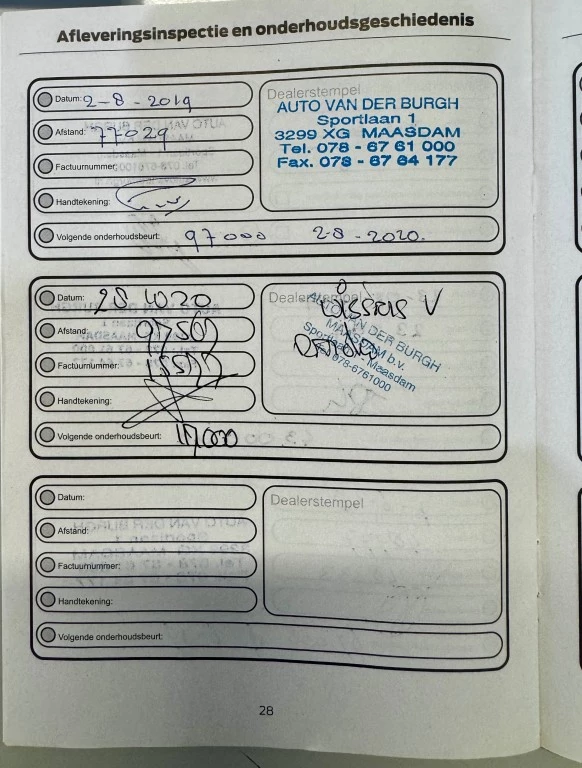 Afleveringsinspectie en onderhoudsgeschiedenis
Datum: 2-8-2019
Afstand: 77029
Factuurnummer:
Handtekening:
Volgende onderhoudsbeurt: 97000 2-8-2020.
Dealerstempel
AUTO VAN DER BURGH
Sportlaan 1
3299 XG MAASDAM
Tel. 078 - 67 61 000
Fax. 078 - 67 64 177
Datum:
Afstand:
Factuurnummer:
Handtekening:
Volgende onderhoudsbeurt:
Dealerstempel
AUTO VAN DER BURGH
MAASDAM b.v.
Sportlaan 1 - Maasdam
Tel. 078-6761000
Datum:
Afstand:
Factuurnummer:
Handtekening:
Volgende onderhoudsbeurt:
Dealerstempel
28